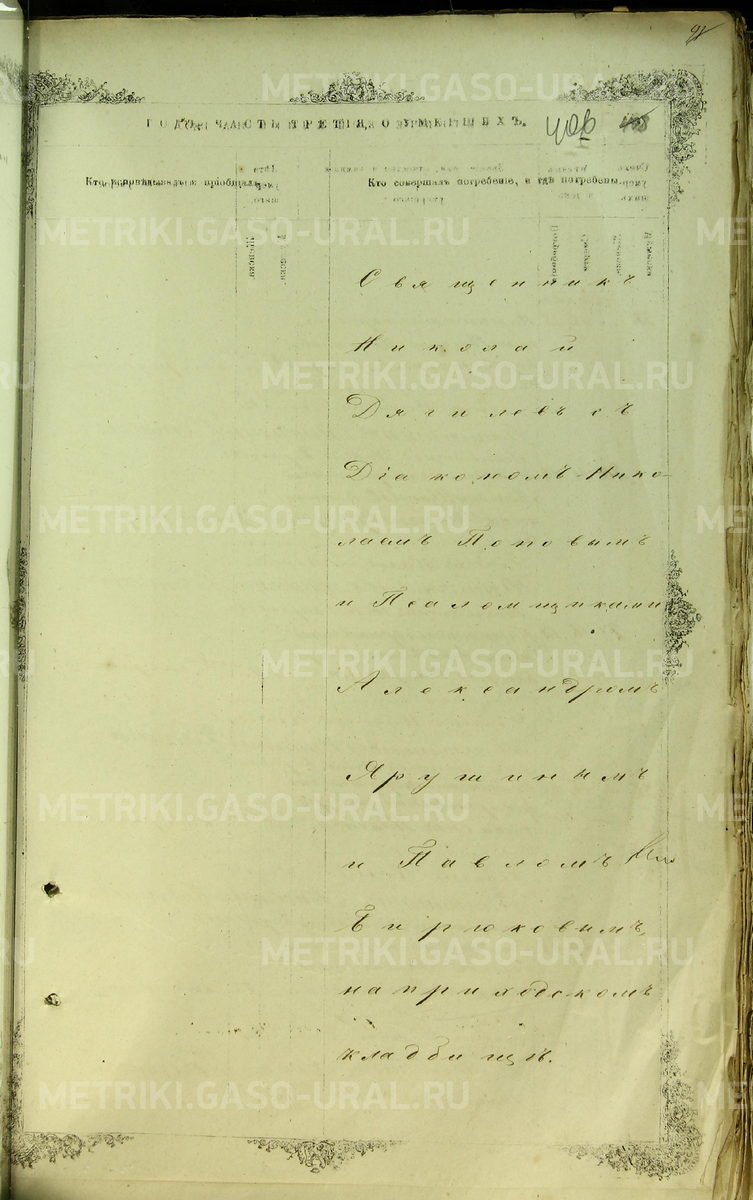 ГОДЪ, ЧАСТЬ ТРЕТІЯ, О УМЕРШИХЪ.
406
Кто исповѣдывалъ и пріобщалъ.
Кто совершалъ погребеніе, и гдѣ погребены.
Священникъ
Николай
Дягилевъ съ
Діакономъ Нико-
лаемъ Поповымъ
и Псаломщиками
Александромъ
Ярушинымъ
и Павломъ
Бирюковымъ,
на приходскомъ
кладбищѣ.
METRIKI.GASO-URAL.RU